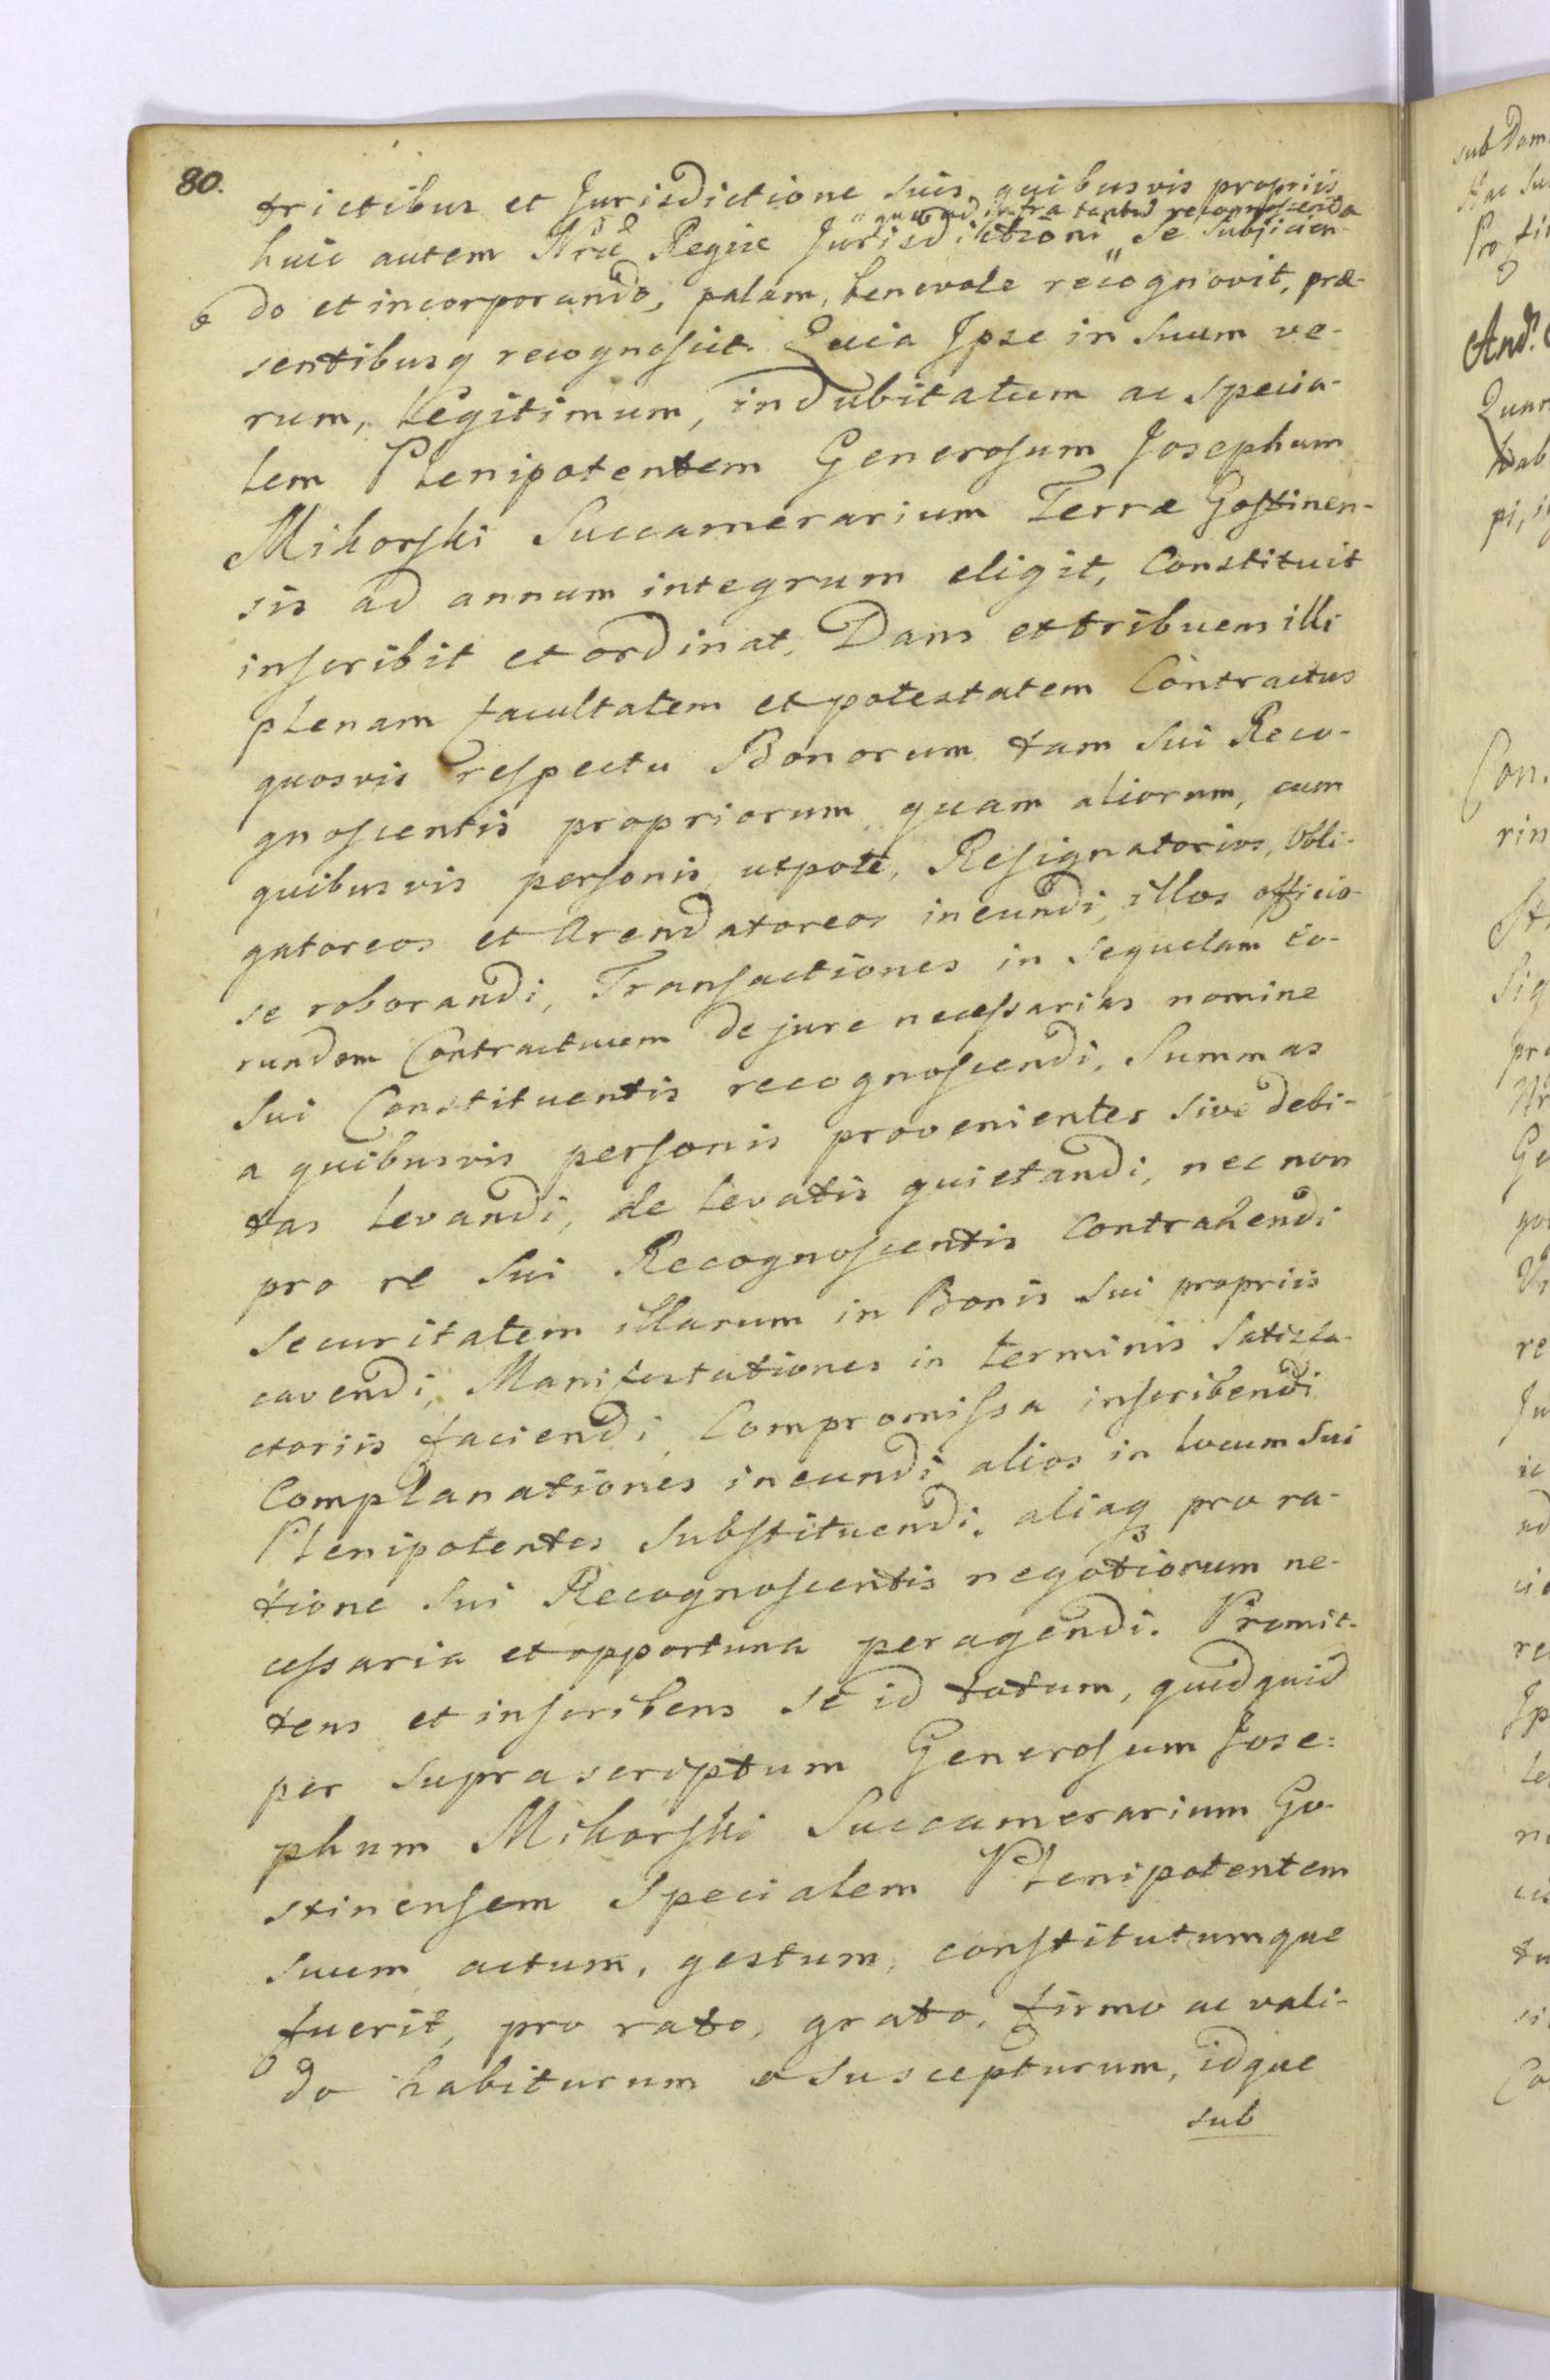 80.
trictibus et Jurisdictione suis quibusvis propriis
" quoad infra tantum recognoscenda
huic autem Nrae Regiae Jurisdictioni " se subjicien-
do et incorporando, palam, benevole recognovit, præ-
sentibusq recognoscit. Quia Ipse in suum ve-
rum, Legitimum, indubitatum ac specia-
lem Plenipotentem Generosum Josephum
Mikorski Succamerarium Terræ Gostinen-
sis ad annum integrum eligit, Constituit
inscribit et ordinat, Dans et tribuens illi
plenam facultatem et potestatem Contractus
quosvis respectu Bonorum tam sui Reco-
gnoscentis propriorum, quam aliorum, cum
quibusvis personis, utpote, Resignatorios, Obli-
gatoreos et Arendatoreos ineundi, illos officio-
se roborandi, Transactiones in sequelam eo-
rundem Contractuum de jure necessarias nomine
sui Constituentis recognoscendi, Summas
a quibusvis personis provenientes sive debi-
tas levandi, de levatis quietandi, nec non
pro re sui Recognoscentis Contrahendi
securitatem illarum in Bonis sui propriis
cavendi, Manifestationes in terminis satisfa-
ctoriis faciendi, Compromissa inscribendi
Complanationes ineundi, alios in locum sui
Plenipotentes substituendi, aliaq pro ra-
tione sui Recognoscentis negotiorum ne-
cessaria et opportuna peragendi. Promit-
tens et inscribens se id totum, quidquid
per suprascriptum Generosum Jose=
phum Mikorski Succamerarium Go-
stinensem specialem Plenipotentem
suum actum, gestum, constitutumque
fuerit, pro rato, grato, firmo ac vali-
do habiturum suscepturum, idque
sub